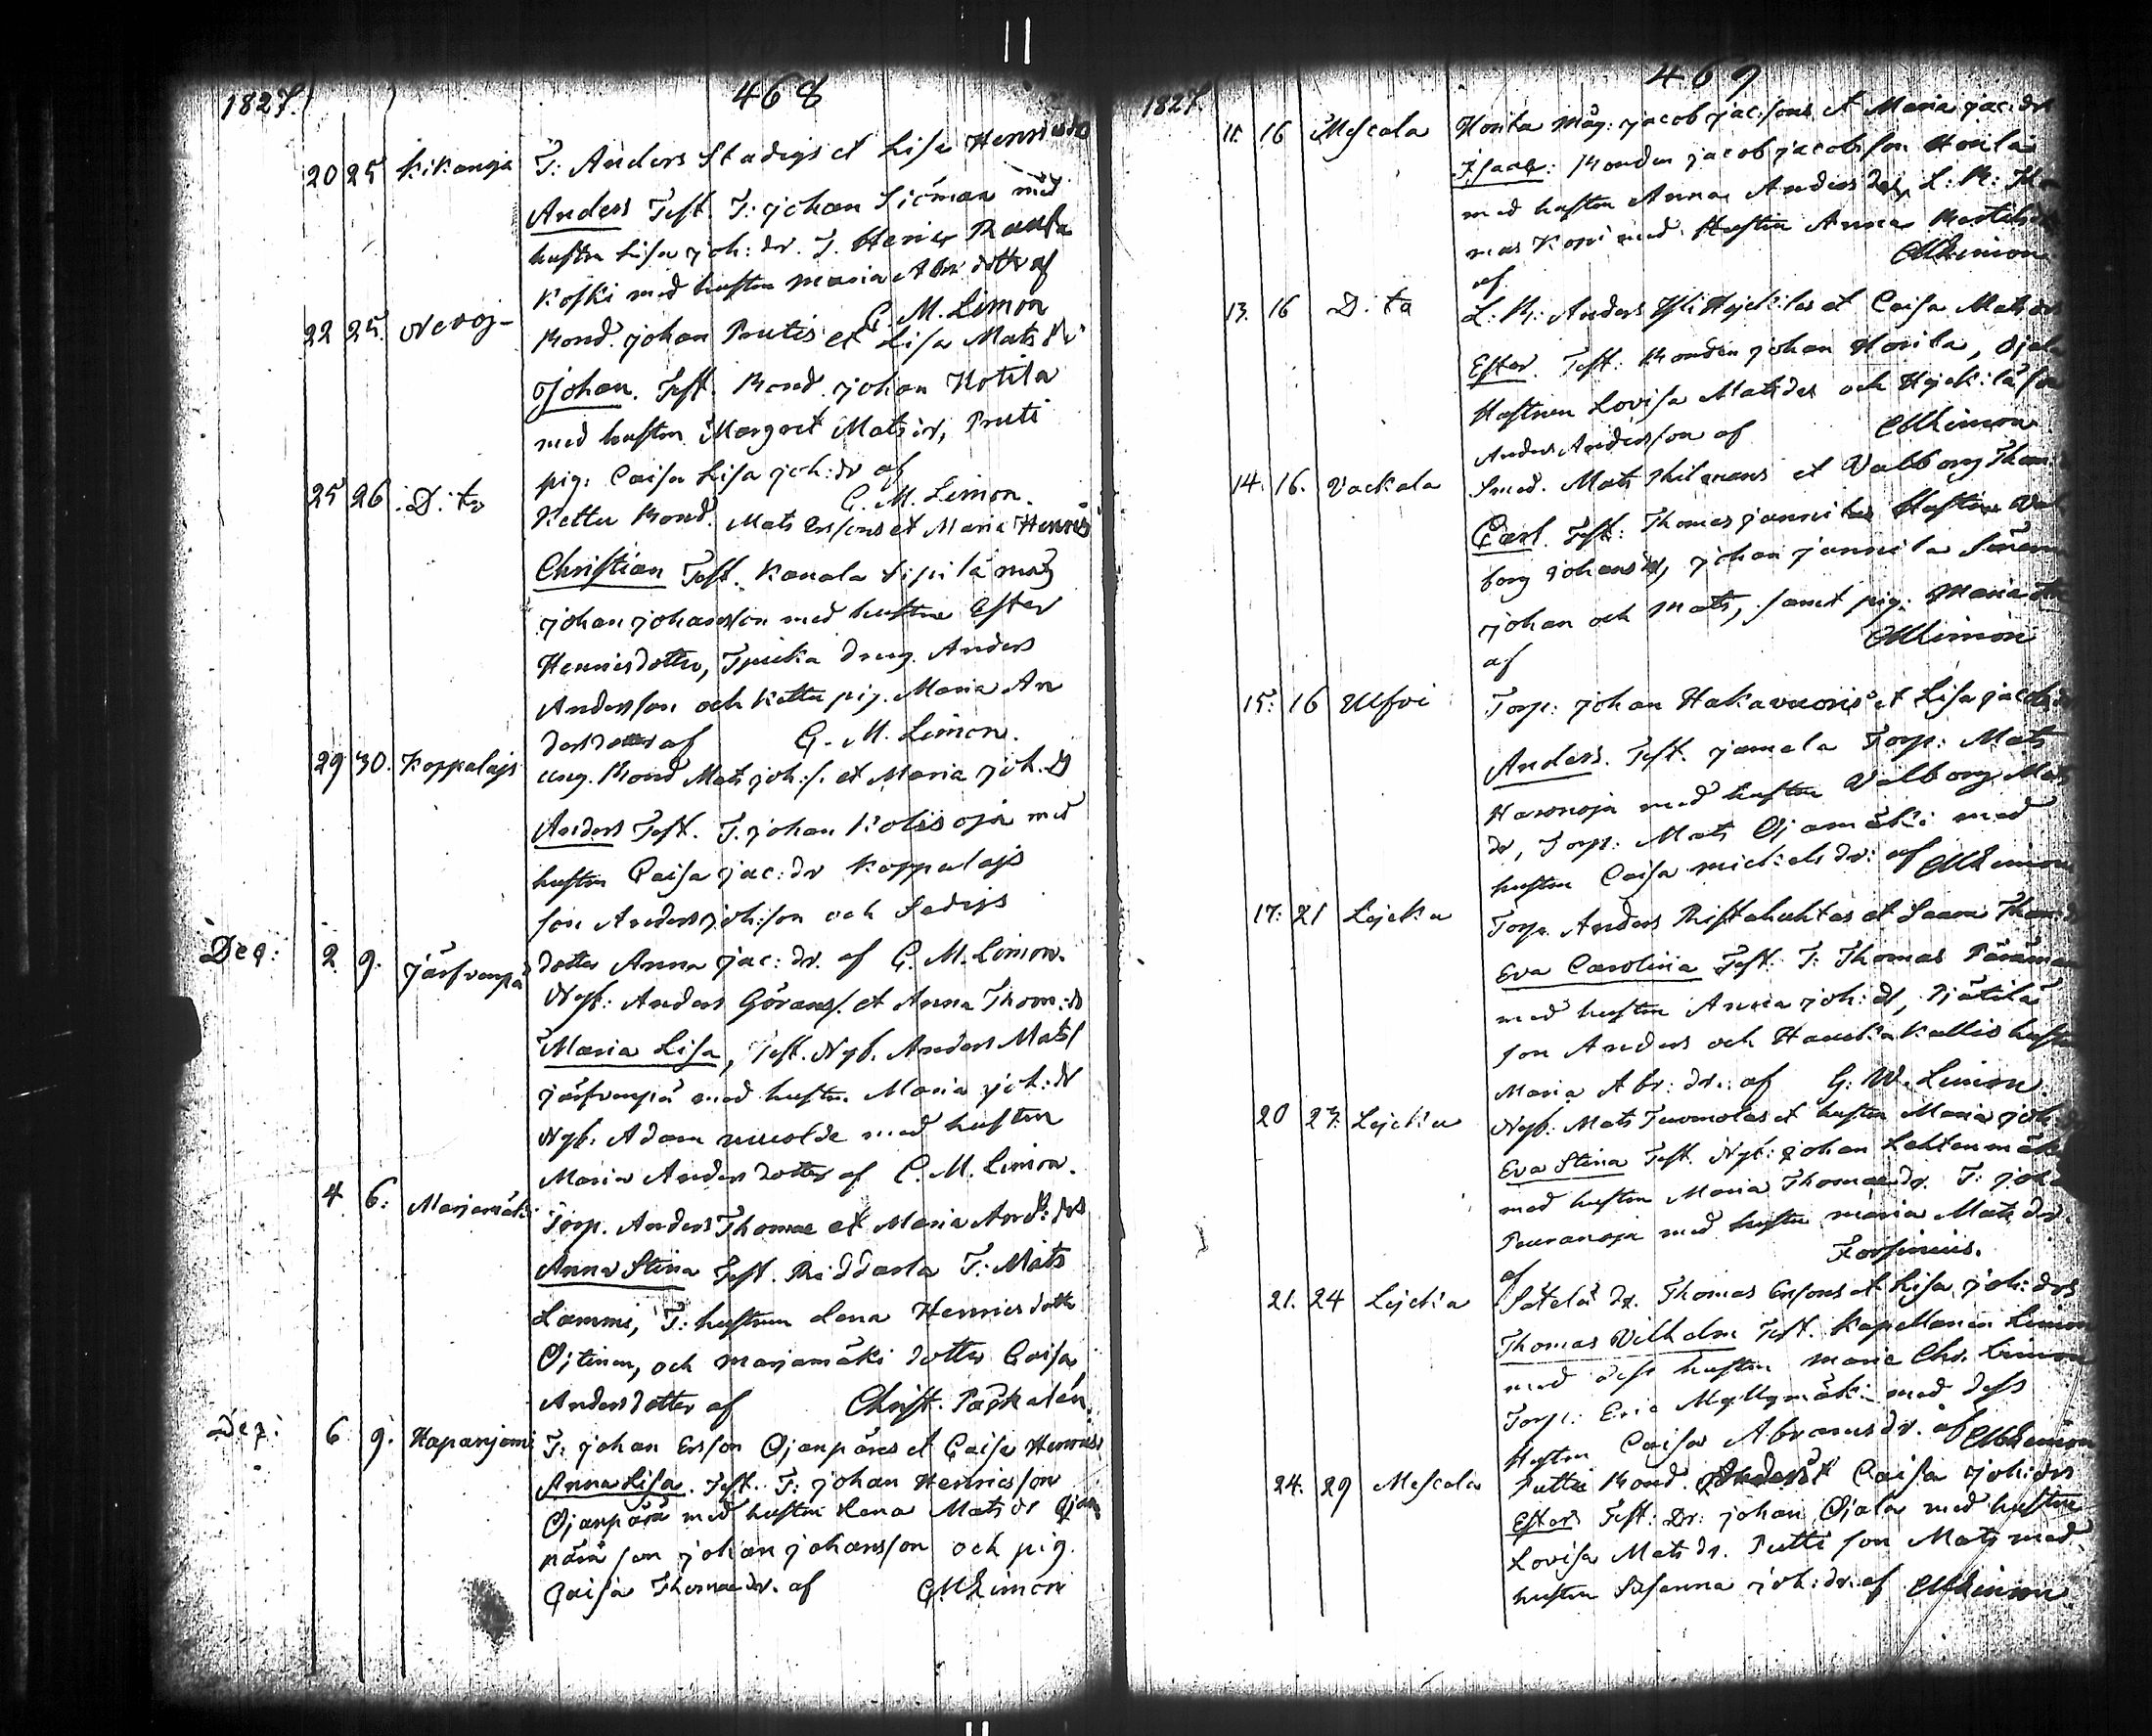 1827. 468
20 25 Kikanoja T: Anders Stadigs et Lisa Henricsdr
Anders Test. T: johan Siöman med
hustru Lisa joh: dr. T. Henric Rauta
Koski med hustru Maria Abr. dotter af
G. M. Limon
22 25. Nevoj- Bond. johan Prutis et Lisa Mats dr
Johan. Test. Bond. johan Kotila
med hustru Margret Mats dr, Pruti
pig: Caisa Lisa joh: dr af
G. M. Limon.
25 26 D:to Kettu Bond. Mats Ersons et Maria Henrics
Christian Test. Kanala Sipilä måg
johan johansson med hustru Ester
Henricsdotter, Ipuka dreng. Anders
Andersson och Kettu pig. Maria An
dersdotter af G. M. Limon.
29 30. Koppalajs ung. Bond Mats joh: s. et Maria joh. dr
Anders Test. T. johan Kolisoja med
hustru Caisa jac: dr Koppalajs
son Anders joh: son och Sadigs
dotter Anna jac: dr. af G. M. Limon.
Dec: 2. 9. järfvenpä Nyb: Anders Görans/. et Anna Thom: dr
Maria Lisa, Test. Nyb. Anders Mats/
järfvenpä med hustru Maria joh: dr
Nyb. Adam med hustru
Maria Anders dotter af G. M. Limon.
4 6: Marjamäki Torp. Anders Thomae et Maria And: drs
Anna Stina Test. Riddarla T: Mats
Lammi, T: hustrun Lena Henrics dotter
Ojtinen, och Marjamäki dotter Caisa
Andersdotter af Christ. Paskalén.
Dec: 6 9. Haparjemi T: johan Erson Ojanpäres et Caisa Henrics
Anna Lisa. Test. T: johan Henricsson
Ojanpärä med hustru Lena Mats dr Ojan
pärä son johan johansson och pig.
Caisa Thomae dr. af G. M. Limon
1827 469
11. 16 Mescala Honila Måg: jacob jac: sons et Maria jac: dr
Isaac: Bonden jacob jacobsson Honila
med hustru Anna Anders dr, L: B: Tho
mas Kopri med Hustru Anna Bertils
af G M Limon
13. 16 D:to L: B: Anders Yli Hejkilas et Caisa Mats drs
Ester. Test: Bonden johan Honila, Ojala
Hustrun Lovisa Mats der och Hejkilä son
Anders Andersson af G M Limon
14. 16. Vackala Smed. Mats Thilmans et Valborg Thom:
Carl. Test: Thomas jannilas Hustru Val
borg Johans dr, johan jannila Söner
johan och Mats, samt pig: Maria
af G M Limon
15: 16 Ulfvi Torp: johan Hakavuoris et Lisa jacobs
Anders. Test. jamala Torp: Mats
Haronoja med hustru Valborg Mats
dr, Torp: Mats Ojamäki med
hustru Caisa Michels dr: af G M Limon
17: 21 Lejcka Torp. Anders Ristaluhtas et Saara Thom:
Eva Carolina Test: T: Thomas Päräman
med hustru Anna joh: dr, Pjätilä
son Anders och Hauska Kallio hustru
Maria Abr: dr.: af G. W. Limon
20 23. Lejcka Nyb: Mats Tuomolas et hustru Maria joh: dr
Eva Stina Test. Nyb: johan Lehtenmäki
med hustru Maria Thomae dr. T: joh
Puuranoja med hustru Maria Mats dr.
af Forsinius.
21. 24 Lejcka Sätelä dr. Thomas Ersons et Lisa joh: drs
Thomas Vilhelm Test. Kapellanen Limon
med dess hustru Maria Chr. Limon
Torp: Eric Myllymäki med dess
Hustru Caisa Abrams dr. af G M Limon
24. 29 Mescala Putti Bond. Anders et Caisa joh: drs
Ester Test: Dr: johan Ojala med hustru
Lovisa Mats dr. Putti son Mats med
hustru Susanna joh: dr. af G M Limon.